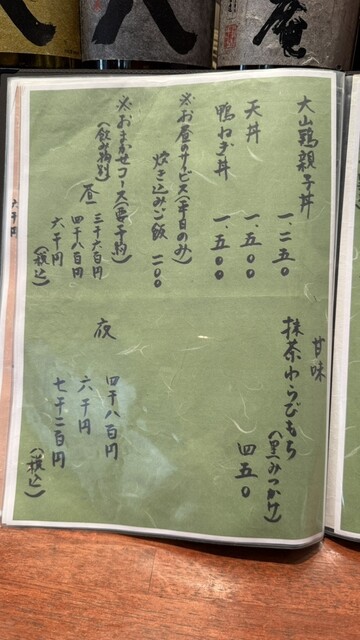 大山鶏親子丼 一、二五〇
天丼 一、五〇〇
鴨ねぎ丼 一、五〇〇
※お昼のサービス(平日のみ)
炊き込みご飯 二〇〇
※おまかせコース(要予約)
(飲み物別)
昼 三千六百円
四千八百円
六千円
(税込)
甘味
抹茶わらびもち
(黒みつかけ)
四五〇
夜
四千八百円
六千円
七千二百円
(税込)
六千円